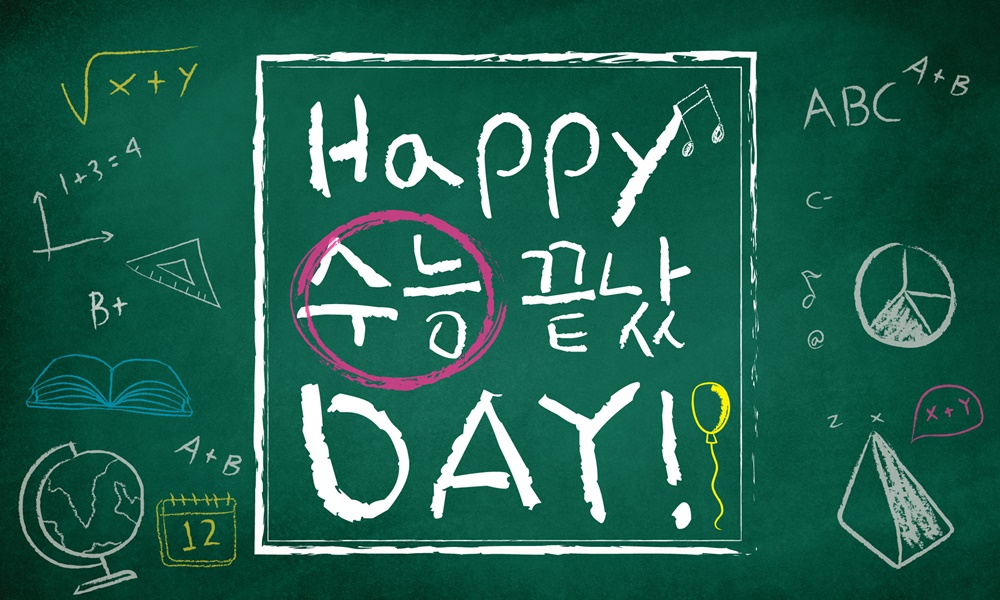 √x+y
1+3=4
B+
A+B
12
Happy
수능 끝났
DAY!
ABC
A+B
C-
@
z x
x+y